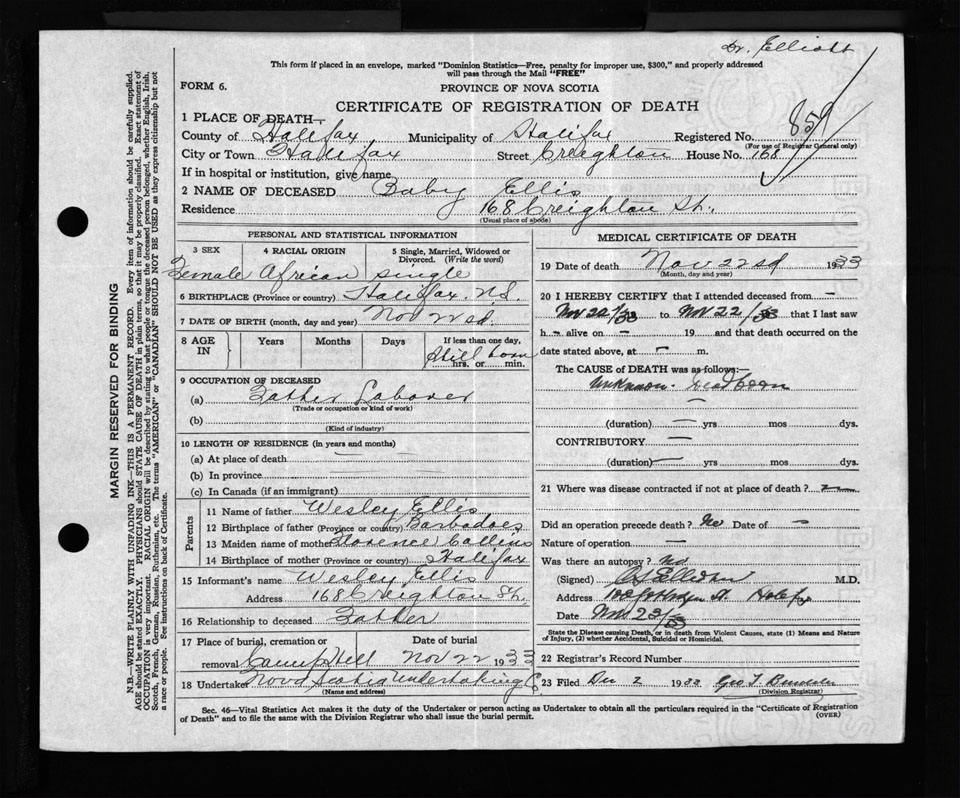 Dr. Elliott
This form if placed in an envelope, marked "Dominion Statistics—Free, penalty for improper use, $300," and properly addressed
will pass through the Mail "FREE"
FORM 6.
PROVINCE OF NOVA SCOTIA
CERTIFICATE OF REGISTRATION OF DEATH
859
1 PLACE OF DEATH—
County of Halifax Municipality of Halifax Registered No.
(For use of Registrar General only)
City or Town Halifax Street Creighton House No. 168
If in hospital or institution, give name
2 NAME OF DECEASED Baby Ellis
Residence 168 Creighton St.
(Usual place of abode)
PERSONAL AND STATISTICAL INFORMATION
3 SEX 4 RACIAL ORIGIN 5 Single, Married, Widowed or Divorced. (Write the word)
Female African single
6 BIRTHPLACE (Province or country) Halifax. N.S.
7 DATE OF BIRTH (month, day and year) Nov 22nd.
8 AGE IN Years Months Days If less than one day,
Still born
hrs. or min.
9 OCCUPATION OF DECEASED
(a) Father Laborer
(Trade or occupation or kind of work)
(b)
(Kind of industry)
10 LENGTH OF RESIDENCE (in years and months)
(a) At place of death —
(b) In province —
(c) In Canada (if an immigrant)
Parents
11 Name of father Wesley Ellis
12 Birthplace of father (Province or country) Barbadoes
13 Maiden name of mother Florence Collins
14 Birthplace of mother (Province or country) Halifax
15 Informant's name Wesley Ellis
Address 168 Creighton St.
16 Relationship to deceased Father
17 Place of burial, cremation or removal Camp Hill Date of burial Nov 22 1933
18 Undertaker Nova Scotia Undertaking Co
(Name and address)
MEDICAL CERTIFICATE OF DEATH
19 Date of death Nov 22nd 1933
(Month, day and year)
20 I HEREBY CERTIFY that I attended deceased from —
Nov 22/33 to Nov 22/33 that I last saw
h— alive on — 19 and that death occurred on the
date stated above, at — m.
The CAUSE of DEATH was as follows:—
Unknown. Dead born
—
(duration) — yrs mos dys.
CONTRIBUTORY —
(duration) — yrs mos dys.
21 Where was disease contracted if not at place of death? —
Did an operation precede death? No Date of —
Nature of operation —
Was there an autopsy? No
(Signed) M.D.
Address St. Halifax
Date Nov 23/33
State the Disease causing Death, or in death from Violent Causes, state (1) Means and Nature
of Injury, (2) whether Accidental, Suicidal or Homicidal.
22 Registrar's Record Number
23 Filed Dec 2 1933 Geo T
(Division Registrar)
Sec. 46—Vital Statistics Act makes it the duty of the Undertaker or person acting as Undertaker to obtain all the particulars required in the "Certificate of Registration
of Death" and to file the same with the Division Registrar who shall issue the burial permit.
(OVER)
MARGIN RESERVED FOR BINDING
N.B.—WRITE PLAINLY WITH UNFADING INK—THIS IS A PERMANENT RECORD. Every item of information should be carefully supplied.
AGE should be stated EXACTLY. PHYSICIANS should STATE CAUSE OF DEATH in plain terms, so that it may be properly classified. Exact statement of
OCCUPATION is very important. RACIAL ORIGIN will be described by stating to what people or tongue the deceased person belonged, whether English, Irish,
Scotch, French, German, Russian, Ruthenian, etc. The terms "AMERICAN" or "CANADIAN" SHOULD NOT BE USED as they express citizenship but not
a race or people. See instructions on back of Certificate.